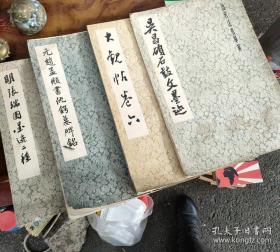 吴昌硕石鼓文墨迹
大观帖卷六
元赵孟頫书仇锷墓碑铭
明张瑞图墨迹二种
孔夫子旧书网